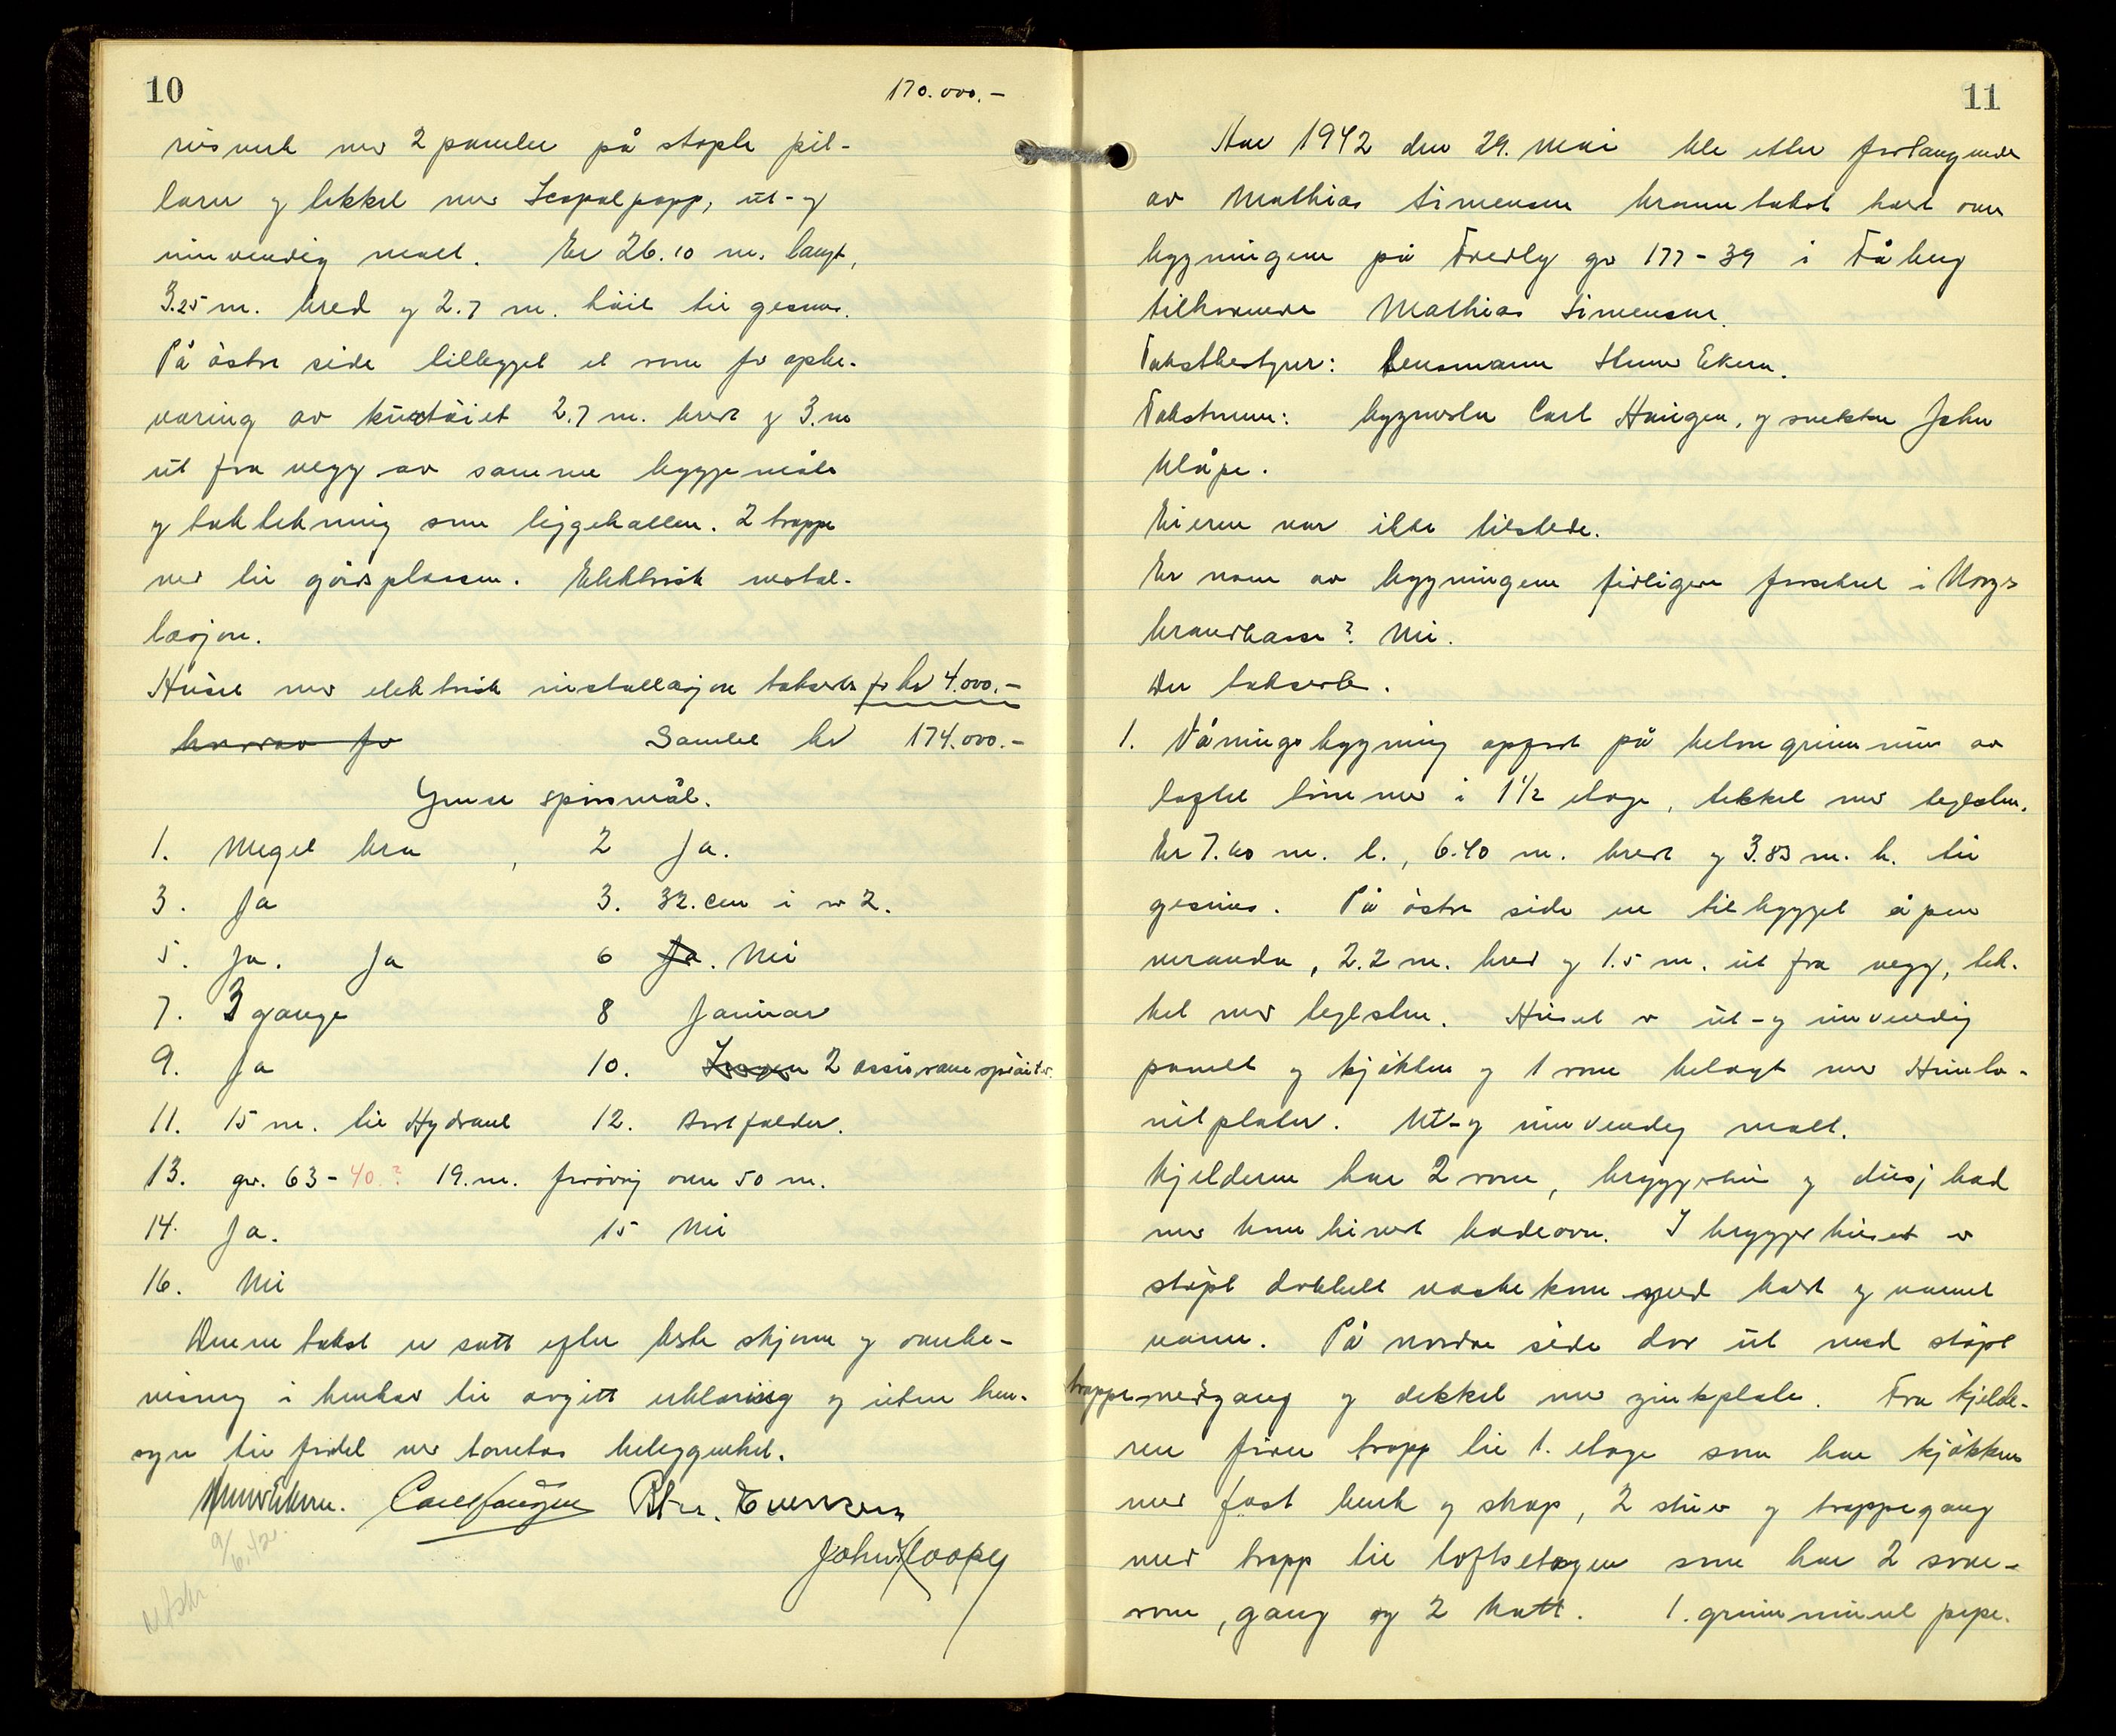 10
170.000.-
reisverk med 2 paneler på støpte pil-
larer og tekket med Icopalpapp, ut- og
innvendig malt. Er 26.10 m. langt,
3.25 m. bred og 2.7 m. höit til gesims.
På östre side tilbygget et rom for opbe-
varing av köretöiet 2.7 m. bredt og 3. m
ut fra vegg av samme byggemåte
og taktekning som liggehallen. 2 trapper
ned til gårdsplassen. Elektrisk instal-
lasjon.
Huset med elektrisk installasjon takseres for kr 4.000.-
hvorav for Samlet kr 174.000.-
Ymse spörsmål.
1. Meget bra, 2 Ja.
3. Ja 3. 32. cm i nr 2.
5. Ja. Ja 6 Ja. Nei
7. 3 gange 8 Januar
9. Ja 10. Ingen 2 assuransespröiter.
11. 15 m. til Hydrant 12. Bortfalder.
13. gnr. 63-40.? 19. m. forövrig over 50 m.
14. Ja. 15 Nei
16. Nei
Denne takst er satt efter beste skjönn og overbe-
visning i henhold til avgitt erklæring og uten hen-
syn til fordel ved tomtens beliggenhet.
Carl Haugen
John Kloopey
9/6.42.
11
Aar 1942 den 29. Mai ble etter forlangende
av Mathias Simensen branntakst holdt over
bygningene på Fredly gnr 177-39 i Fåberg
tilhörende Mathias Simensen.
Takstbestyrer: Lensmann Ekern.
Takstmenn: byggmester Carl Haugen, og snekker John
Klåpe.
Eieren var ikke tilstede.
Er noen av bygningene tidligere forsikret i Norges
brandkasse? Nei.
Der takseredes.
1. Våningsbygning opfört på betongrunnmur av
laftet tömmer i 1 1/2 etage, tekket med teglsten.
Er 7.60 m. l., 6.40 m. bredt og 3.83 m. h. til
gesims. På östre side en tilbygget åpen
veranda, 2.2 m. bred og 1.5 m. ut fra vegg, tek-
ket med teglsten. Huset er ut- og innvendig
panelt og kjökken og 1 rom belagt med Hunto-
nitplater. Ut- og innvendig malt.
Kjelderen har 2 rom, bryggerhus og dusjbad
med kombinert badeovn. I bryggerhuset er
stöpt dobbelt vaskekum med koldt og varmt
vann. På nordre side dör ut med stöpt
trappenedgang og dekket med zinkplate. Fra kjelde-
ren förer trapp til 1. etage som har kjökken
med fast benk og skap, 2 stuer og trappegang
med trapp til loftsetagen som har 2 sove-
rom, gang og 2 kott. 1. grunnmuret pipe.